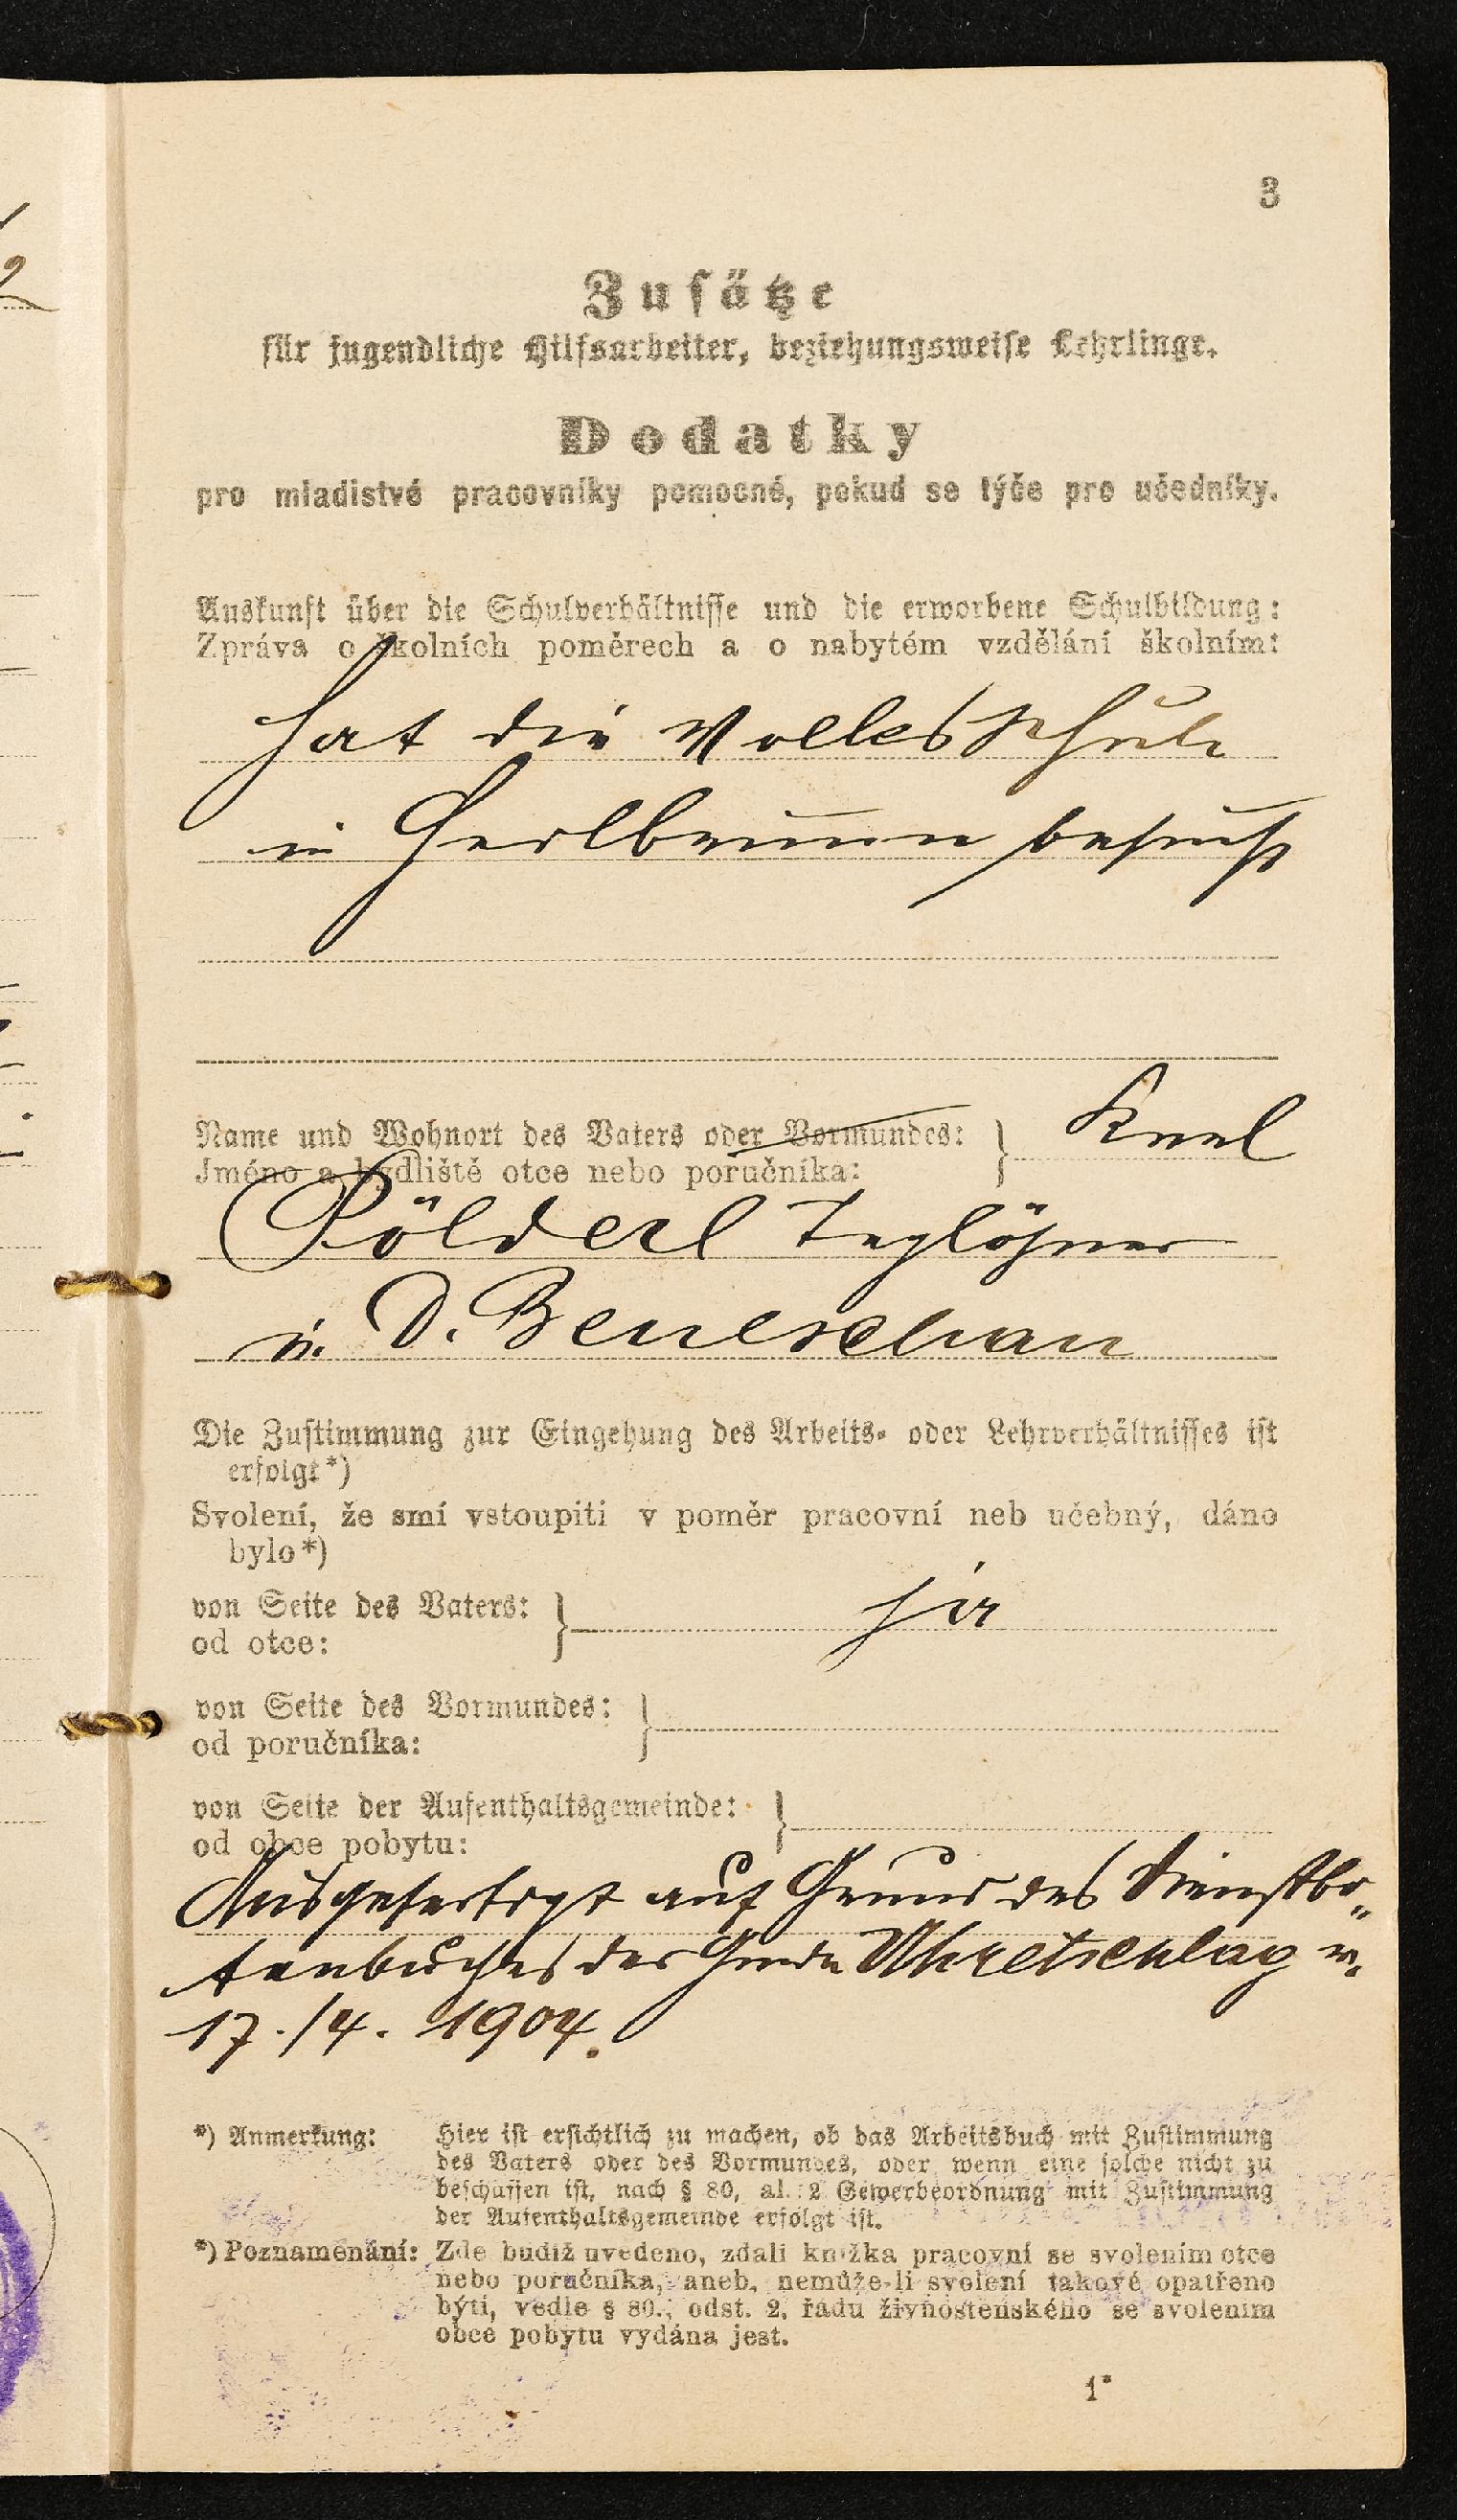 3
Zusätze
für jugendliche Hilfsarbeiter, beziehungsweise Lehrlinge.
Dodatky
pro mladistvé pracovníky pomocné, pokud se týče pro učedníky.
Auskunft über die Schulverhältnisse und die erworbene Schulbildung:
Zpráva o školních poměrech a o nabytém vzdělání školním:
hat die Volksschule
in besucht
Name und Wohnort des Vaters oder Vormundes:
Jméno a bydliště otce nebo poručníka:
Karl
Pölderl Taglöhner
in D. Beneschau
Die Zustimmung zur Eingehung des Arbeits- oder Lehrverhältnisses ist
erfolgt*)
Svolení, že smí vstoupiti v poměr pracovní neb učebný, dáno
bylo*)
von Seite des Vaters:
od otce:
ja
von Seite des Vormundes:
od poručníka:
von Seite der Aufenthaltsgemeinde:
od obce pobytu:
Ausgefertigt auf Grund des Dienstbo„
tenbuches der Gmde Uhretschlag v.
17./4. 1904.
*) Anmerkung: Hier ist ersichtlich zu machen, ob das Arbeitsbuch mit Zustimmung
des Vaters oder des Vormundes, oder wenn eine solche nicht zu
beschaffen ist, nach § 80, al. 2 Gewerbeordnung mit Zustimmung
der Aufenthaltsgemeinde erfolgt ist.
*) Poznamenání: Zde budiž uvedeno, zdali knížka pracovní se svolením otce
nebo poručníka, aneb, nemůže-li svolení takové opatřeno
býti, vedle § 80., odst. 2. řádu živnostenského se svolením
obce pobytu vydána jest.
1*